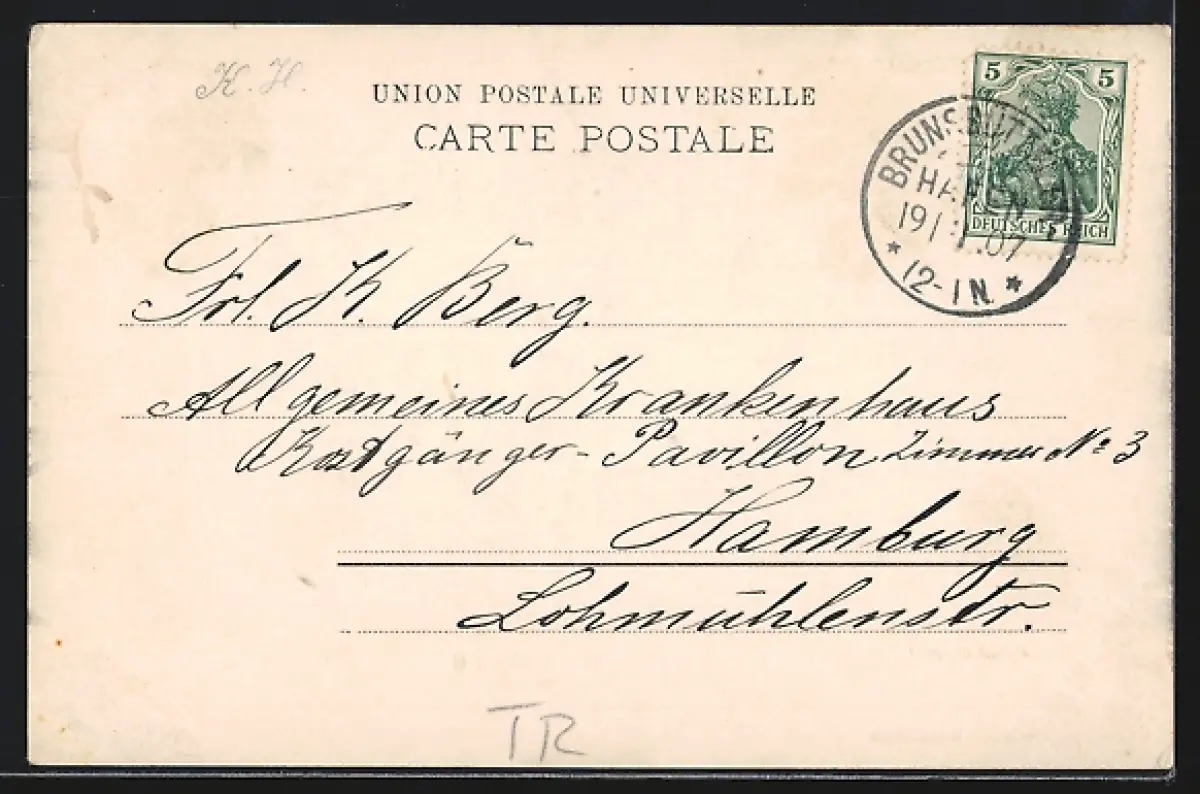 K. H.
UNION POSTALE UNIVERSELLE
CARTE POSTALE
5 5
DEUTSCHES REICH
BRUNSBÜTTEL
HAFEN
19/ .07
* 12-1 N. *
Frl. K. Berg.
Allgemeines Krankenhaus
Kostgänger-Pavillon Zimmer No 3
Hamburg
Lohmühlenstr.
TR